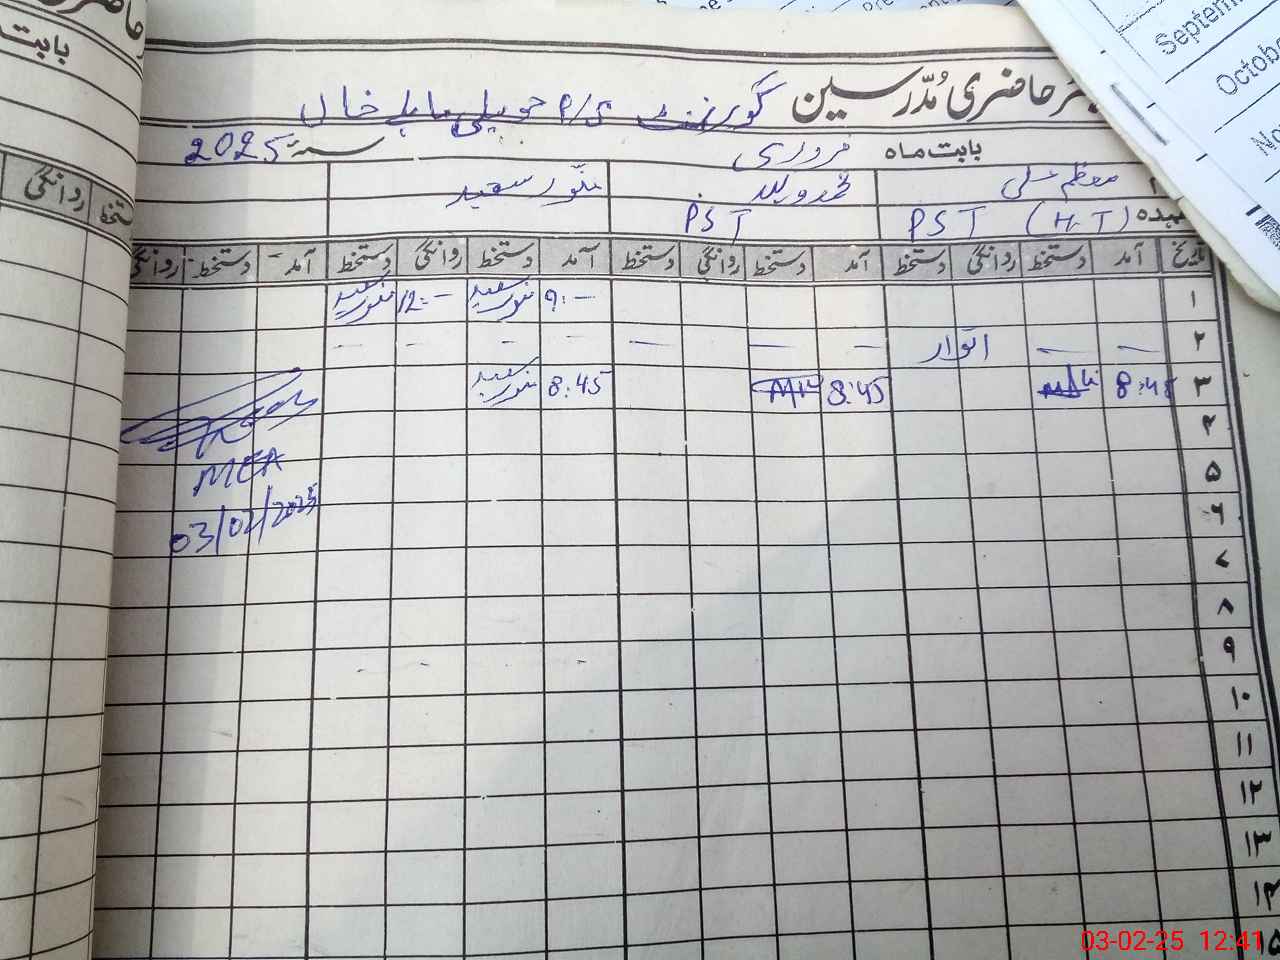 حاضری مُدّرسین گورنمنٹ
بابت ماہ فروری سنہ 2025
معظم علی
منور سعید
عہدہ PST (H.T)
PST
تاریخ آمد دستخط روانگی دستخط آمد دستخط روانگی دستخط آمد دستخط روانگی دستخط آمد دستخط روانگی
۱ 9:- منور سعید 12:- منور سعید
۲ — — اتوار — — — - - - -
۳ 8:45 8:45 8:45 منور سعید
۴
MEA
۵
03/02/2025
۶
۷
۸
۹
۱۰
۱۱
۱۲
۱۳
۱۴
۱۵
بابت
روانگی
Septem
Octobe
No
03-02-25 12:41